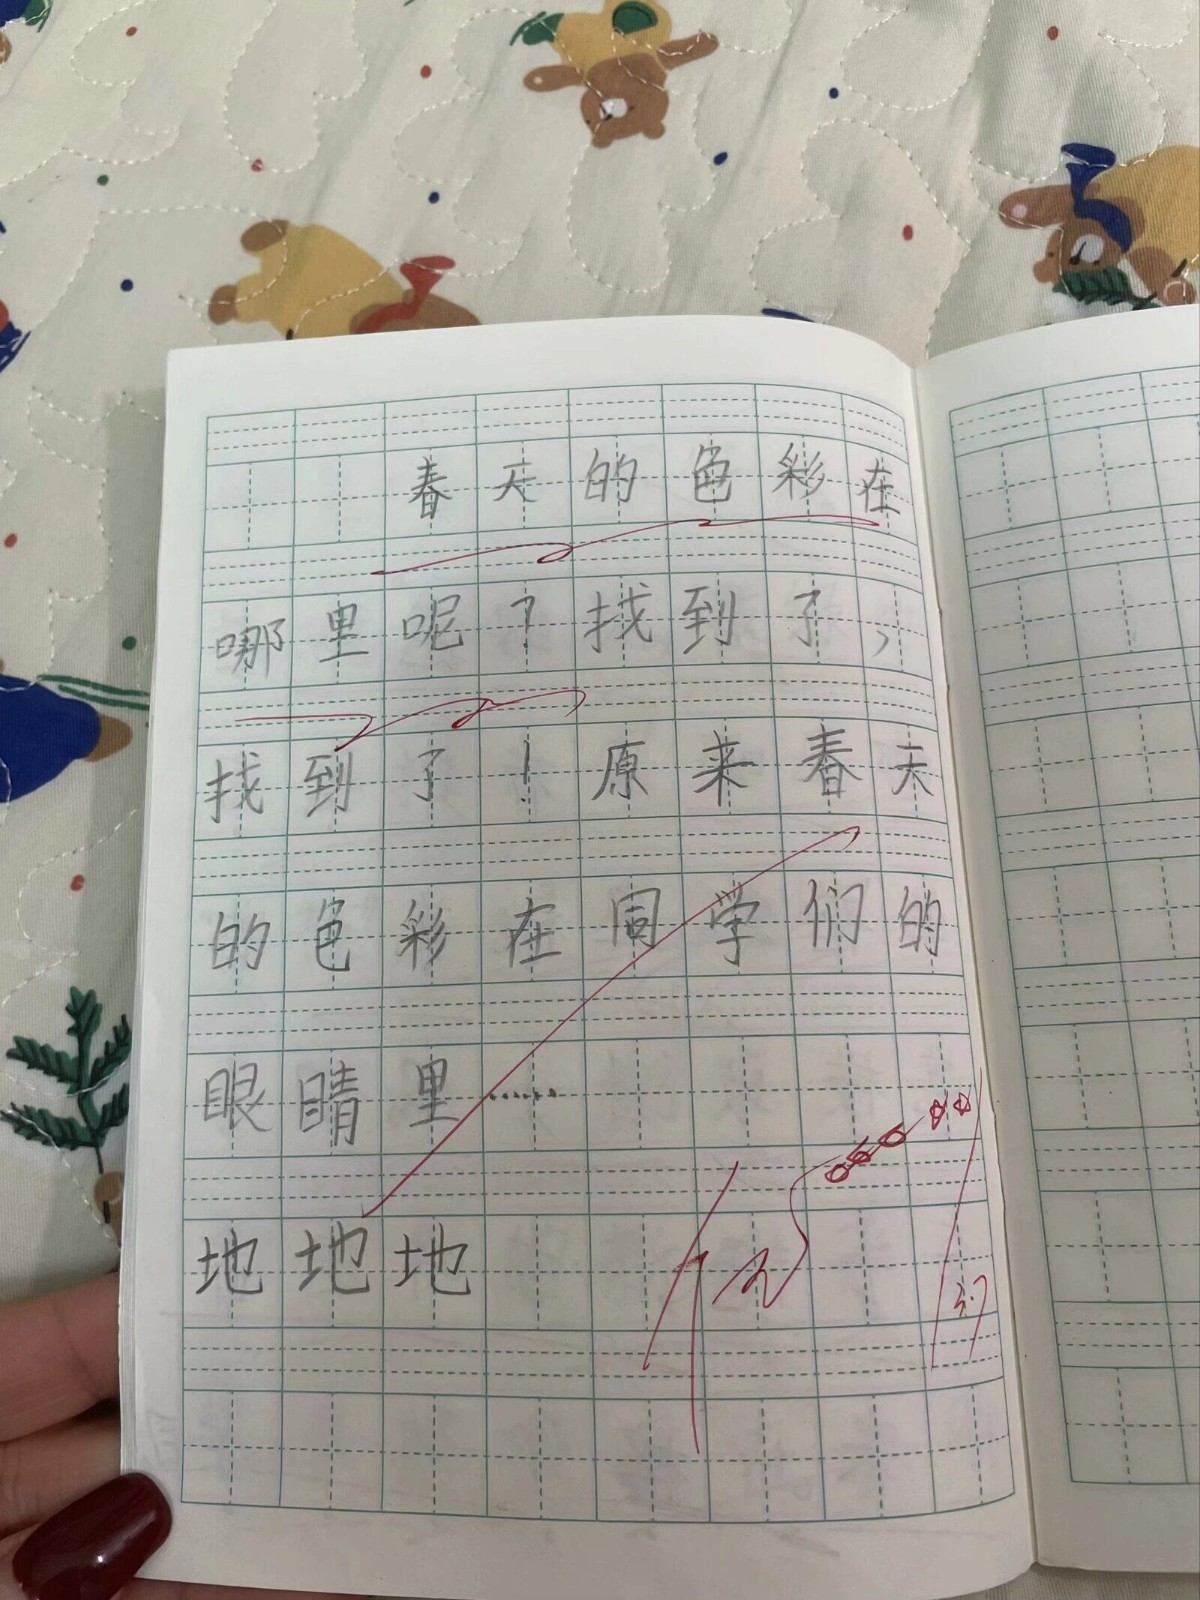 春天的色彩在
哪里呢？找到了，
找到了！原来春天
的色彩在同学们的
眼睛里……
地地地
3.7